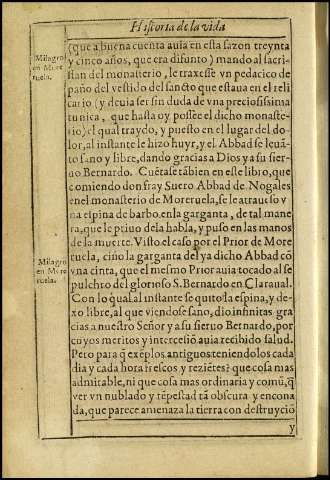 Historia de la vida
(que a buena cuenta auia en esta sazon treynta
y cinco años, que era difunto) mando al sacri-
stan del monasterio, le traxesse vn pedacico de
paño del vestido del sancto que estaua en el reli
cario (y deuia ser sin duda de vna preciosissima
tunica, que hasta oy possee el dicho monaste-
rio) el qual traydo, y puesto en el lugar del do-
lor, al instante le hizo huyr, y el Abbad se leuã-
to sano y libre, dando gracias a Dios y a su sier-
uo Bernardo. Cuẽtase tãbien en este libro, que
comiendo don fray Suero Abbad de Nogales
en el monasterio de Moreruela, se le atrauesso v
na espina de barbo en la garganta, de tal mane
ra, que le priuo de la habla, y puso en las manos
de la muerte. Visto el caso por el Prior de More
ruela, ciño la garganta del ya dicho Abbad cõ
vna cinta, que el mesmo Prior auia tocado al se
pulchro del glorioso S. Bernardo en Claraual.
Con lo qual al instante se quito la espina, y de-
xo libre, al que viendose sano, dio infinitas gra
cias a nuestro Señor y a su sieruo Bernardo, por
cuyos meritos y intercesiõ auia recibido salud.
Pero para q̃ exẽplos antiguos teniendolos cada
dia y cada hora frescos y reziẽtes? que cosa mas
admirable, ni que cosa mas ordinaria y comũ, q̃
ver vn nublado y tẽpestad tã obscura y encona
da, que parece amenaza la tierra con destruyciõ
y
Milagro
en More
ruela.
Milagro
en More
ruela.